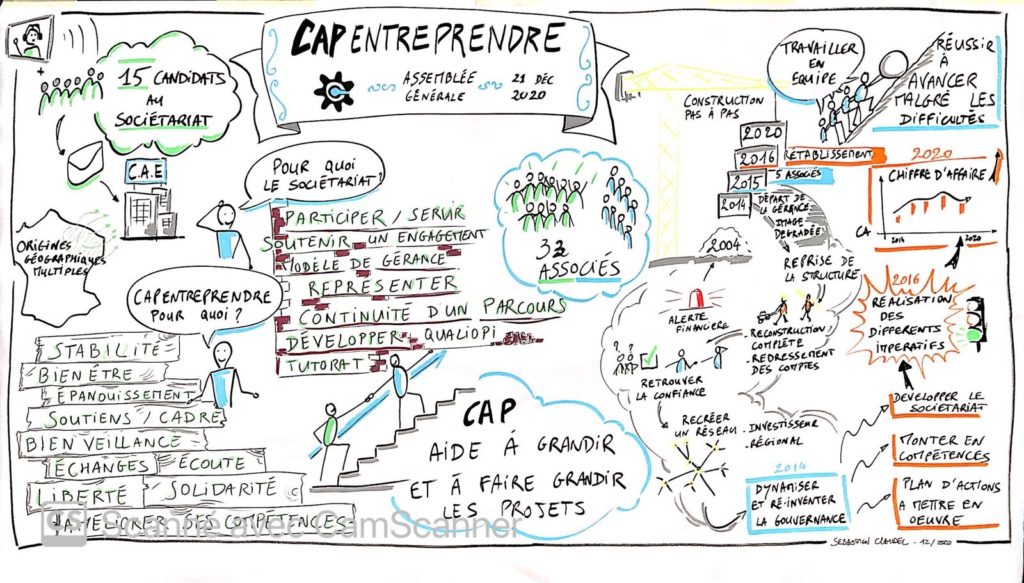 CAP ENTREPRENDRE
ASSEMBLÉE
GÉNÉRALE
21 DÉC
2020
15 CANDIDATS
AU
SOCIÉTARIAT
C.A.E
ORIGINES
GÉOGRAPHIQUES
MULTIPLES
POUR QUOI
LE SOCIÉTARIAT?
PARTICIPER / SERVIR
SOUTENIR UN ENGAGEMENT
MODÈLE DE GÉRANCE
REPRÉSENTER
CONTINUITÉ D'UN PARCOURS
DÉVELOPPER QUALIOPI
TUTORAT
32
ASSOCIÉS
CAPENTREPRENDRE
POUR QUOI ?
STABILITÉ
BIEN ÊTRE
ÉPANOUISSEMENT
SOUTIENS / CADRE
BIENVEILLANCE
ÉCHANGES
ÉCOUTE
LIBERTÉ
SOLIDARITÉ
AMÉLIORER DES COMPÉTENCES
CAP
AIDE À GRANDIR
ET À FAIRE GRANDIR
LES PROJETS
TRAVAILLER
EN
EQUIPE
RÉUSSIR
À
AVANCER
MALGRÉ LES
DIFFICULTÉS
CONSTRUCTION
PAS À PAS
2020
2016
RÉTABLISSEMENT
2015
5 ASSOCIÉS
2014
DÉPART DE
LA GÉRANCE
IMAGE
DÉGRADÉE
2004
REPRISE DE
LA STRUCTURE
ALERTE
FINANCIÈRE
RECONSTRUCTION
COMPLÈTE
- REDRESSEMENT
DES COMPTES
RETROUVER
LA CONFIANCE
RECRÉER
UN RÉSEAU
- INVESTISSEUR
RÉGIONAL
2014
DYNAMISER
ET RÉ-INVENTER
LA GOUVERNANCE
2020
CHIFFRE D'AFFAIRE
CA
2014
2020
2016
RÉALISATION
DES
DIFFERENTS
IMPERATIFS
DEVELOPPER LE
SOCIETARIAT
MONTER EN
COMPÉTENCES
PLAN D'ACTIONS
A METTRE EN
OEUVRE
SEBASTIEN CLAUDEL - 12/2020
CS Scanné avec CamScanner